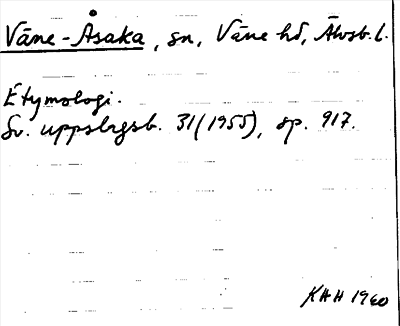 Väne-Åsaka, sn, Väne hd, Älvsb. l.
Etymologi.
Sv. uppslagsb. 31(1955), sp. 917.
KHH 1960